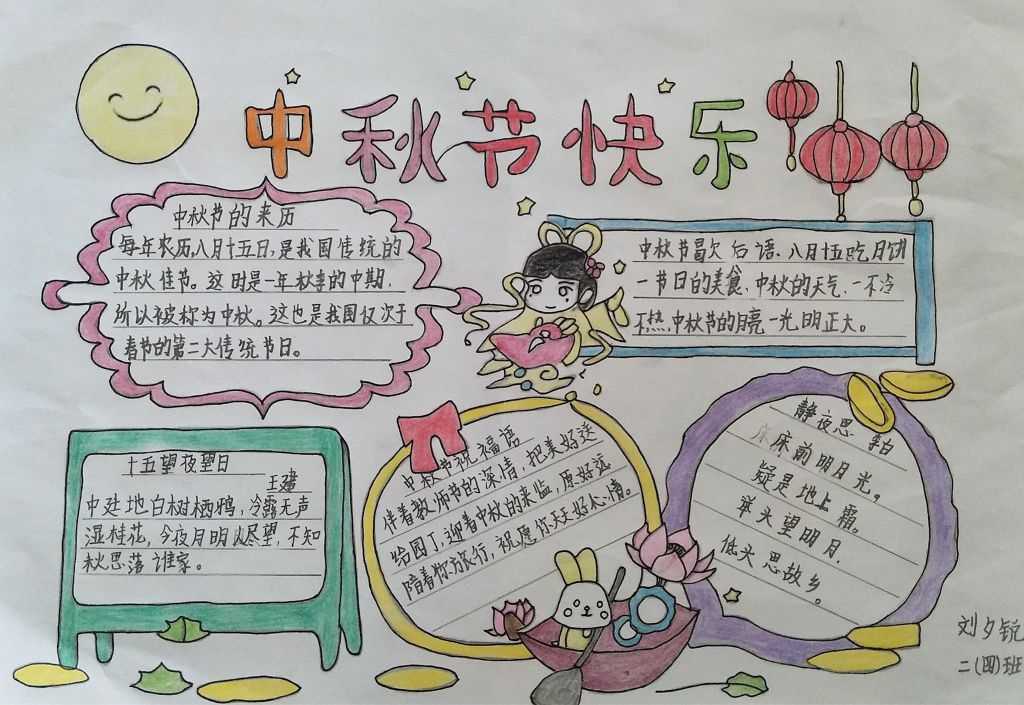 中秋节快乐
中秋节的来历
每年农历八月十五日,是我国传统的
中秋佳节。这时是一年秋季的中期,
所以被称为中秋。这也是我国仅次于
春节的第二大传统节日。
中秋节歇后语、八月十五吃月饼
一节日的美食、中秋的天气、一不冷
不热,中秋节的月亮一光明正大。
十五望夜望日
王建
中廷地白树栖鸦,冷露无声
湿桂花,今夜月明尽望,不知
秋思落谁家。
中秋节祝福语
伴着教师节的深情,把美好送
给园丁,迎着中秋的来临,原好运
陪着你方旅行,祝愿你天天好心情。
静夜思 李白
床前明月光。
疑是地上霜。
举头望明月,
低头思故乡。
刘夕锐
二(四)班